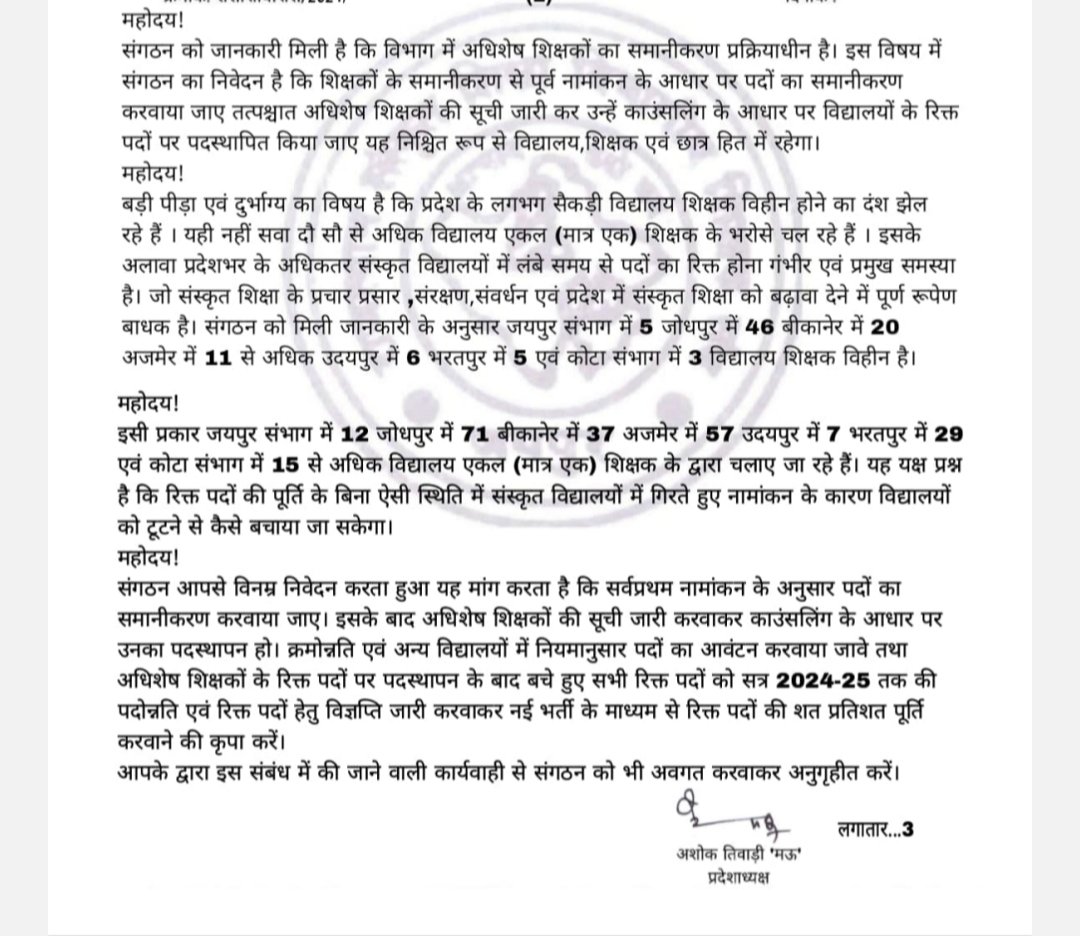 महोदय!
संगठन को जानकारी मिली है कि विभाग में अधिशेष शिक्षकों का समानीकरण प्रक्रियाधीन है। इस विषय में
संगठन का निवेदन है कि शिक्षकों के समानीकरण से पूर्व नामांकन के आधार पर पदों का समानीकरण
करवाया जाए तत्पश्चात अधिशेष शिक्षकों की सूची जारी कर उन्हें काउंसलिंग के आधार पर विद्यालयों के रिक्त
पदों पर पदस्थापित किया जाए यह निश्चित रूप से विद्यालय,शिक्षक एवं छात्र हित में रहेगा।
महोदय!
बड़ी पीड़ा एवं दुर्भाग्य का विषय है कि प्रदेश के लगभग सैकड़ी विद्यालय शिक्षक विहीन होने का दंश झेल
रहे हैं । यही नहीं सवा दौ सौ से अधिक विद्यालय एकल (मात्र एक) शिक्षक के भरोसे चल रहे हैं । इसके
अलावा प्रदेशभर के अधिकतर संस्कृत विद्यालयों में लंबे समय से पदों का रिक्त होना गंभीर एवं प्रमुख समस्या
है। जो संस्कृत शिक्षा के प्रचार प्रसार ,संरक्षण,संवर्धन एवं प्रदेश में संस्कृत शिक्षा को बढ़ावा देने में पूर्ण रूपेण
बाधक है। संगठन को मिली जानकारी के अनुसार जयपुर संभाग में 5 जोधपुर में 46 बीकानेर में 20
अजमेर में 11 से अधिक उदयपुर में 6 भरतपुर में 5 एवं कोटा संभाग में 3 विद्यालय शिक्षक विहीन है।
महोदय!
इसी प्रकार जयपुर संभाग में 12 जोधपुर में 71 बीकानेर में 37 अजमेर में 57 उदयपुर में 7 भरतपुर में 29
एवं कोटा संभाग में 15 से अधिक विद्यालय एकल (मात्र एक) शिक्षक के द्वारा चलाए जा रहे हैं। यह यक्ष प्रश्न
है कि रिक्त पदों की पूर्ति के बिना ऐसी स्थिति में संस्कृत विद्यालयों में गिरते हुए नामांकन के कारण विद्यालयों
को टूटने से कैसे बचाया जा सकेगा।
महोदय!
संगठन आपसे विनम्र निवेदन करता हुआ यह मांग करता है कि सर्वप्रथम नामांकन के अनुसार पदों का
समानीकरण करवाया जाए। इसके बाद अधिशेष शिक्षकों की सूची जारी करवाकर काउंसलिंग के आधार पर
उनका पदस्थापन हो। क्रमोन्नति एवं अन्य विद्यालयों में नियमानुसार पदों का आवंटन करवाया जावे तथा
अधिशेष शिक्षकों के रिक्त पदों पर पदस्थापन के बाद बचे हुए सभी रिक्त पदों को सत्र 2024-25 तक की
पदोन्नति एवं रिक्त पदों हेतु विज्ञप्ति जारी करवाकर नई भर्ती के माध्यम से रिक्त पदों की शत प्रतिशत पूर्ति
करवाने की कृपा करें।
आपके द्वारा इस संबंध में की जाने वाली कार्यवाही से संगठन को भी अवगत करवाकर अनुगृहीत करें।
लगातार...3
अशोक तिवाड़ी 'मऊ'
प्रदेशाध्यक्ष